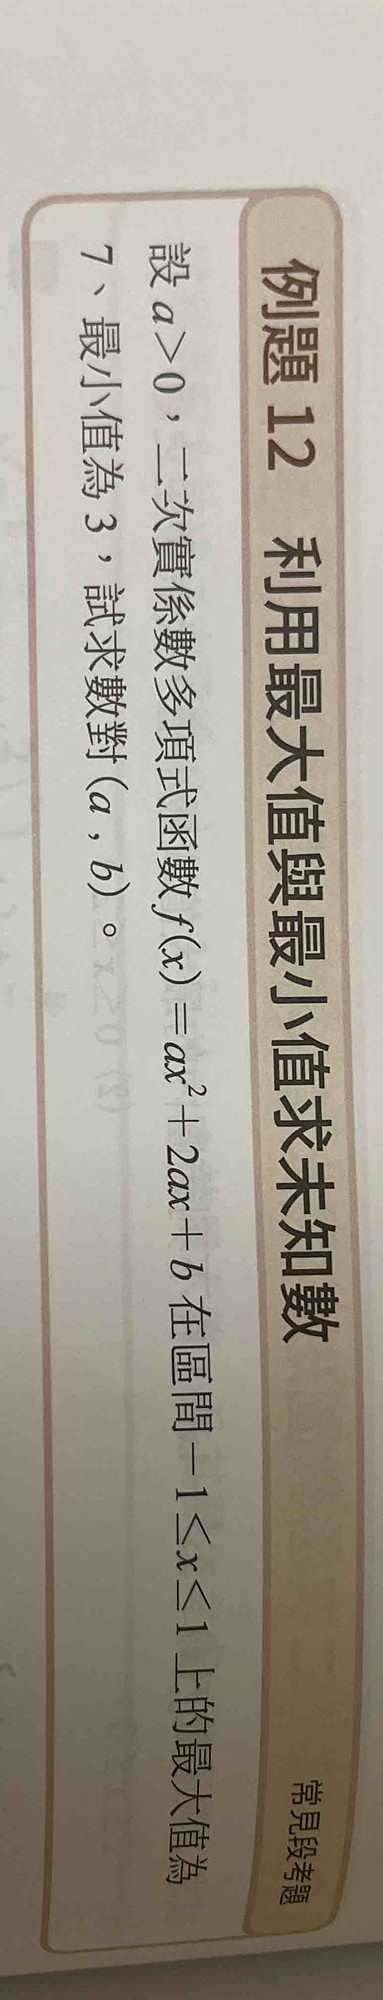 例題 12 利用最大值與最小值求未知數 常見段考題
設 a>0，二次實係數多項式函數 f(x)=ax²+2ax+b 在區間 −1≤x≤1 上的最大值為
7、最小值為 3，試求數對 (a , b)。